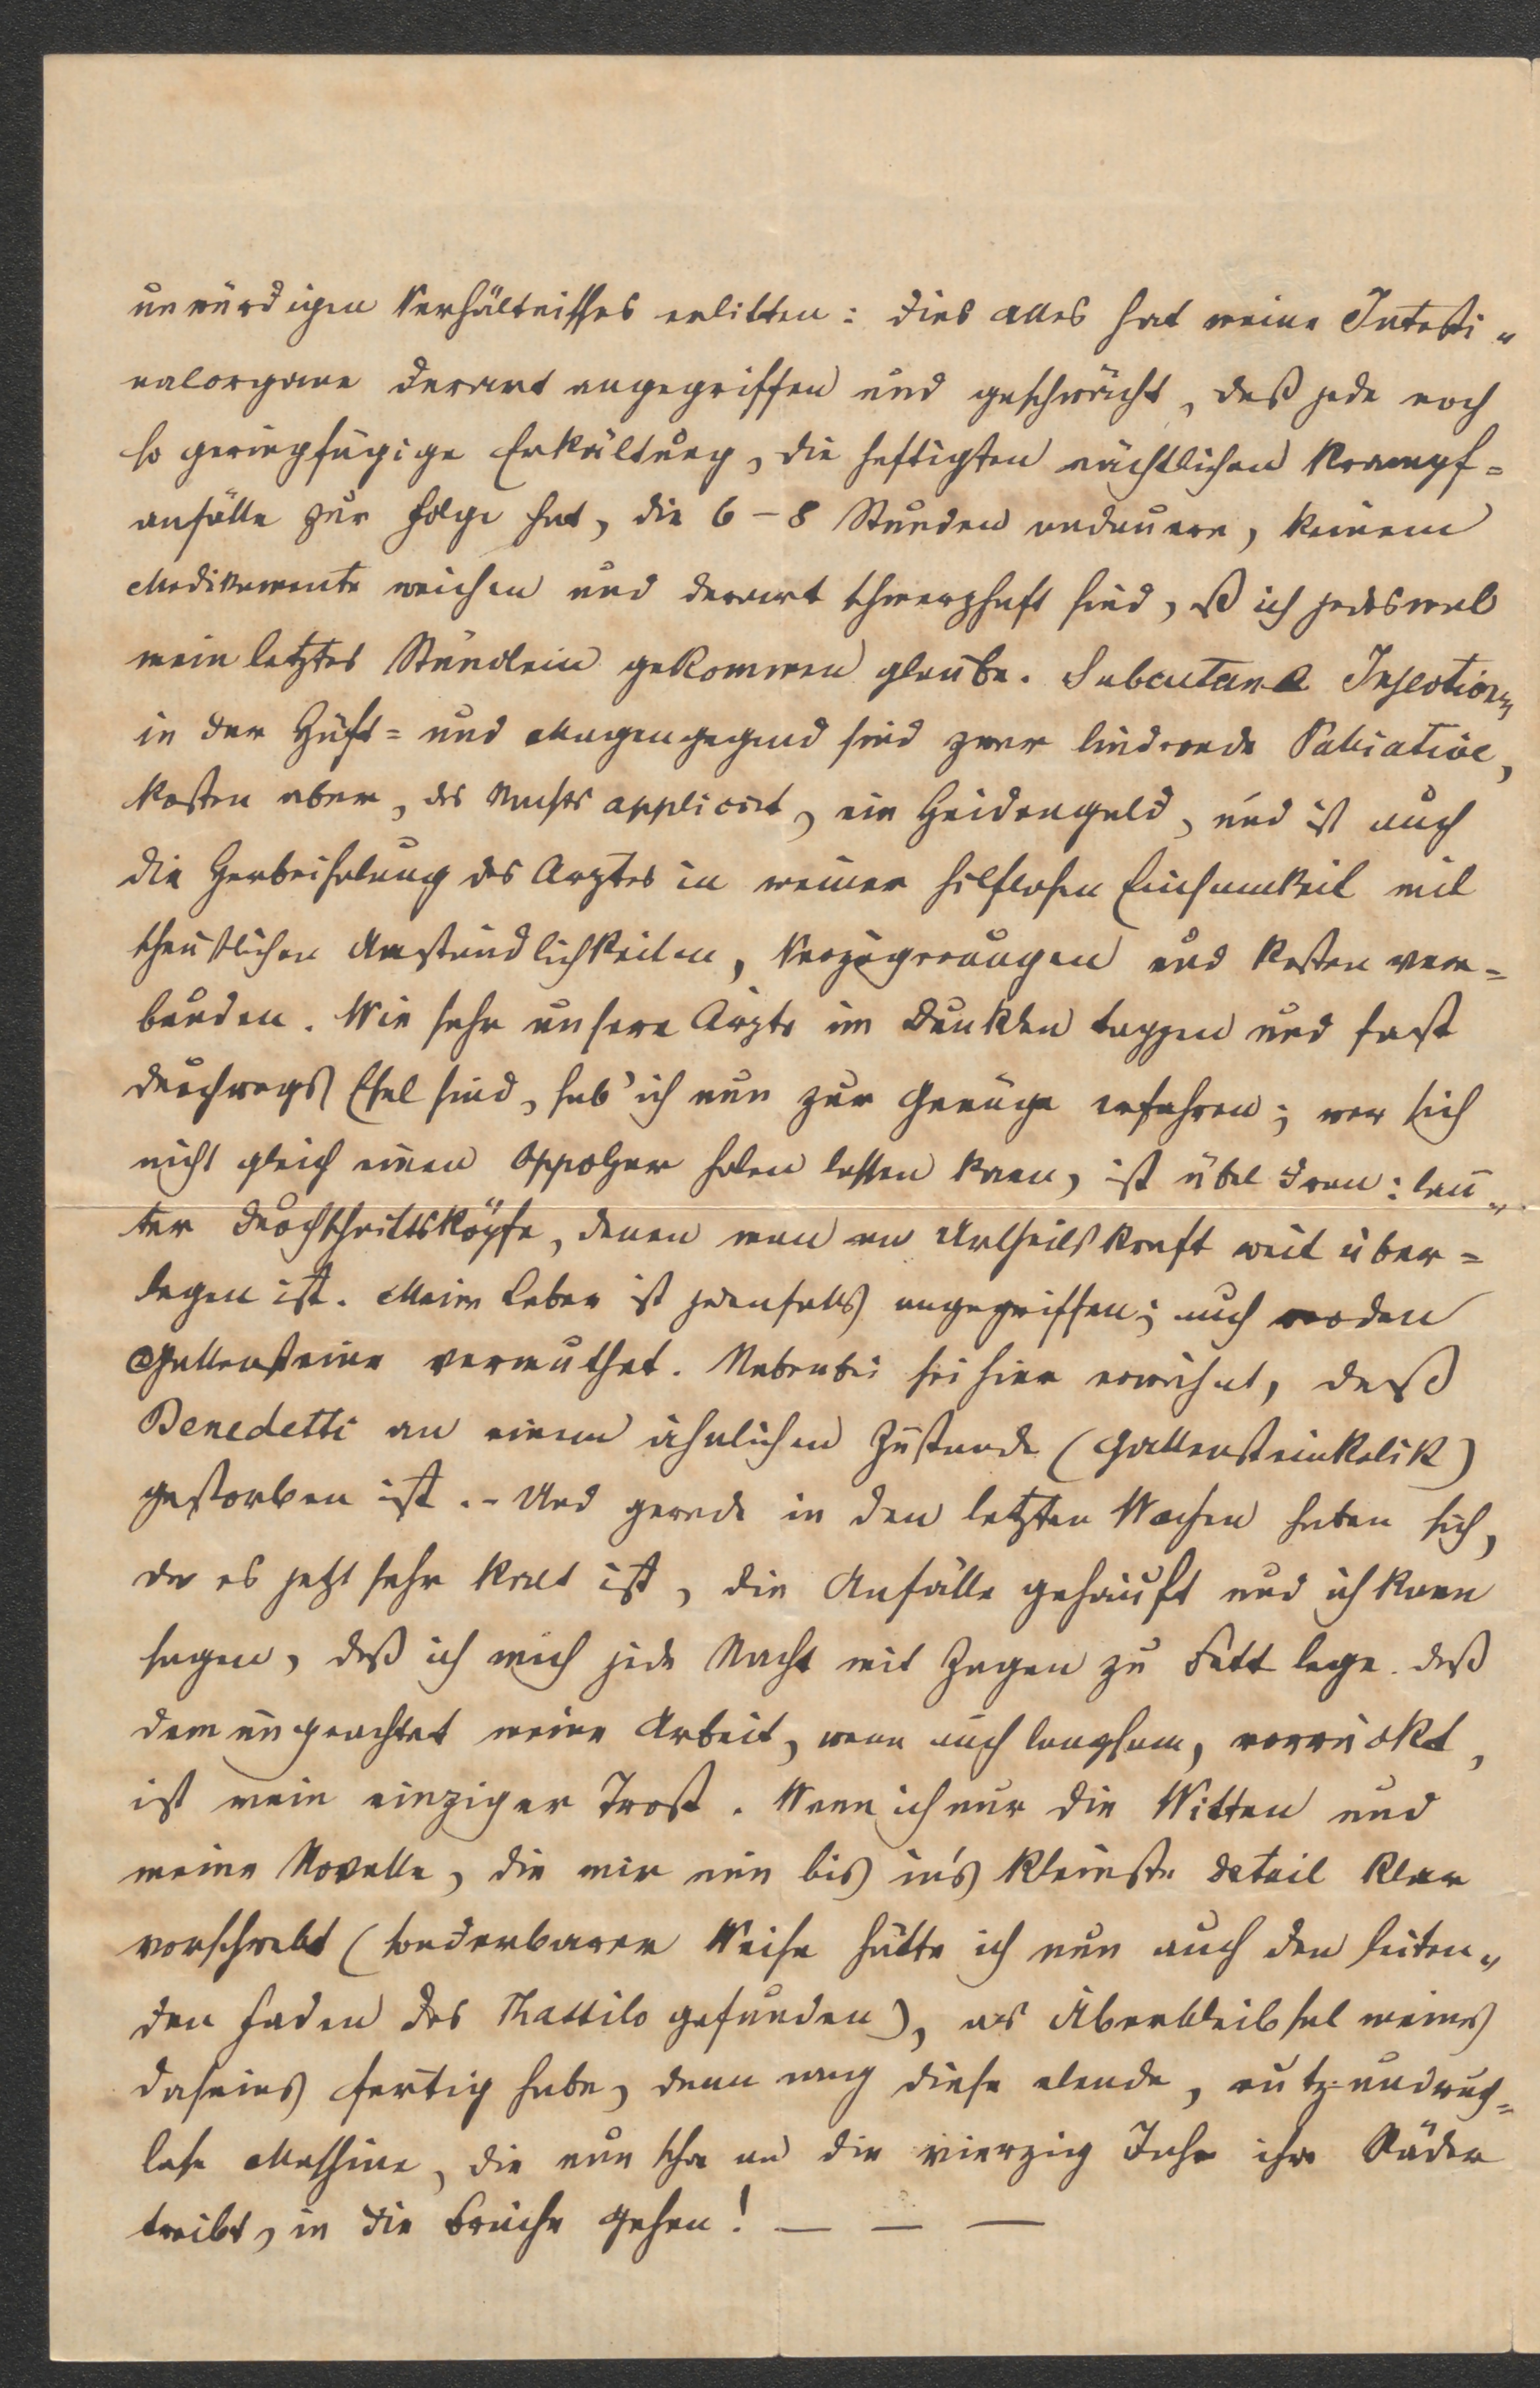 unwürdigen Verhältnisses erlitten: dies alles hat meine Intesti„
nalorgane derart angegriffen und geschwächt, daß jede noch
so geringfügige Erkältung, die heftigsten nächtlichen Krampf=
anfälle zur Folge hat, die 6–8 Stunden andauern, keinem
Medikamente weichen und derart schmerzhaft sind, ß ich jedesmal
mein letztes Stündlein gekommen glaube. Subcutane Injectionen
in der Hüft= und Magengegend sind zwar lindernde Paliative,
kosten aber, des Nachts applicirt, ein Heidengeld, und ist auch
die Herbeiholung des Arztes in meiner hilflosen Einsamkeit mit
Umständlichkeiten, Verzögerungen und Kosten ver=
bunden. Wie sehr unsere Ärzte im Dunklen tappen und fast
durchwegs Esel sind, hab' ich nun zur Genüge erfahren; wer sich
nicht gleich einen Oppolzer holen lassen kann, ist übel dran: lau„
ter Durchschnittsköpfe, denen man an Urtheilskraft weit über=
legen ist. Meine Leber ist jedenfalls angegriffen; auch werden
Gallensteine vermuthet. Nebenbei sei hier erwähnt, daß
Benedetti an einem ähnlichen Zustande (Gallensteinkolik)
gestorben ist. – Und gerade in den letzten Wochen haben sich,
da es jetzt sehr kalt ist, die Anfälle gehäuft und ich kann
sagen, daß ich mich jede Nacht mit Zagen zu Bett lege. Daß
dem ungeachtet meine Arbeit, wenn auch langsam, vorrückt,
ist mein einziger Trost. Wenn ich nur die Witten und
meine Novelle, die mir nun bis in's kleinste Detail klar
vorschwebt (sonderbarer Weise hätte ich nun auch den leiten„
den Faden des Thassilo gefunden), als Überbleibsel meines
Daseins fertig habe, dann mag diese elende, nutz- und ruch=
lose Maschine, die nun schon an die vierzig Jahr ihre Räder
treibt, in die Brüche gehen! — — —